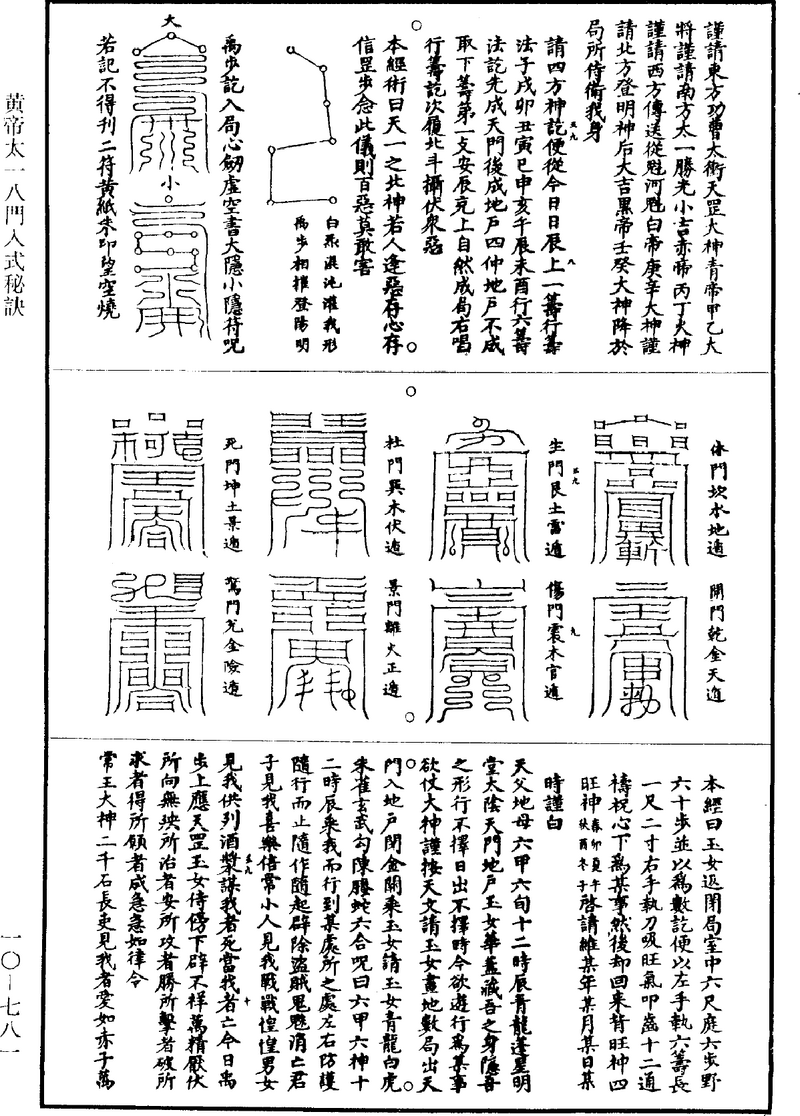 謹請東方功曹太衝天罡大神青帝甲乙大
將謹請南方太一勝光小吉赤帝丙丁火神
謹請西方傳送從魁河魁白帝庚辛大神謹
請北方登明神后大吉黑帝壬癸大神降於
局所侍衛我身
請四方神訖便從今日日辰上一籌行籌
法子戌卯丑寅巳申亥午辰未酉行六籌
法訖先成天門後成地戶四仲地戶不成
取下籌第一攴安辰克上自然成局右唱
行籌訖次履北斗攝伏衆惡
本經術曰天一之北神若人逢惡存心存
信罡步念此儀則百惡莫敢害
白炁混沌灌我形
禹步相推登陽明
禹步訖入局心劒虛空書大隱小隱符呪
大
小
若記不得刊二符黃紙朱印望空燒
休門坎水地遁
生門艮土雷遁
杜門巽木伏遁
死門坤土景遁
開門乾金天遁
傷門震木官遁
景門離火正遁
驚門兌金險遁
本經曰玉女返閉局室中六尺庭六步野
六十步並以爲數訖便以左手執六籌長
一尺二寸右手執刀吸旺氣叩齒十二通
禱祝心下爲某事然後却回來背旺神四
旺神春卯夏午秋酉冬子啓請維某年某月某日某
時謹白
天父地母六甲六旬十二時辰青龍蓬星明
堂太陰天門地戶玉女華蓋藏吾之身隱吾
之形行不擇日出不擇時今欲遊行爲某事
欲仗大神謹按天文請玉女畫地數局出天
門入地戶閉金關乘玉女請玉女青龍白虎
朱雀玄武勾陳螣蛇六合呪曰六甲六神十
二時辰乘我而行到某處所之處左右防護
隨行而止隨作隨起辟除盜賊鬼魅消亡君
子見我喜樂倍常小人見我戰戰惶惶男女
見我供列酒漿謀我者死當我者亡今日禹
步上應天罡玉女侍傍下辟不祥萬精厭伏
所向無殃所治者安所攻者勝所擊者破所
求者得所願者咸急急如律令
常王大神二千石長吏見我者愛如赤子萬
黃帝太一八門入式秘訣
一〇—七八一